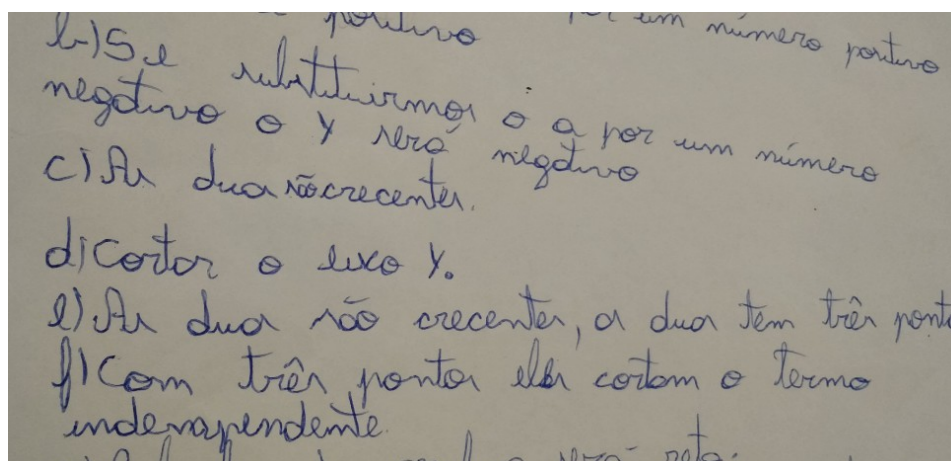 positivo por um número positivo
b-) Se substituirmos o a por um número
negativo o y será negativo
c) As duas são crecentes.
d) Cortar o eixo y.
e) As duas são crecentes, as duas tem três ponto
f) Com três pontos eles cortam o termo
indenapendente.
será reta